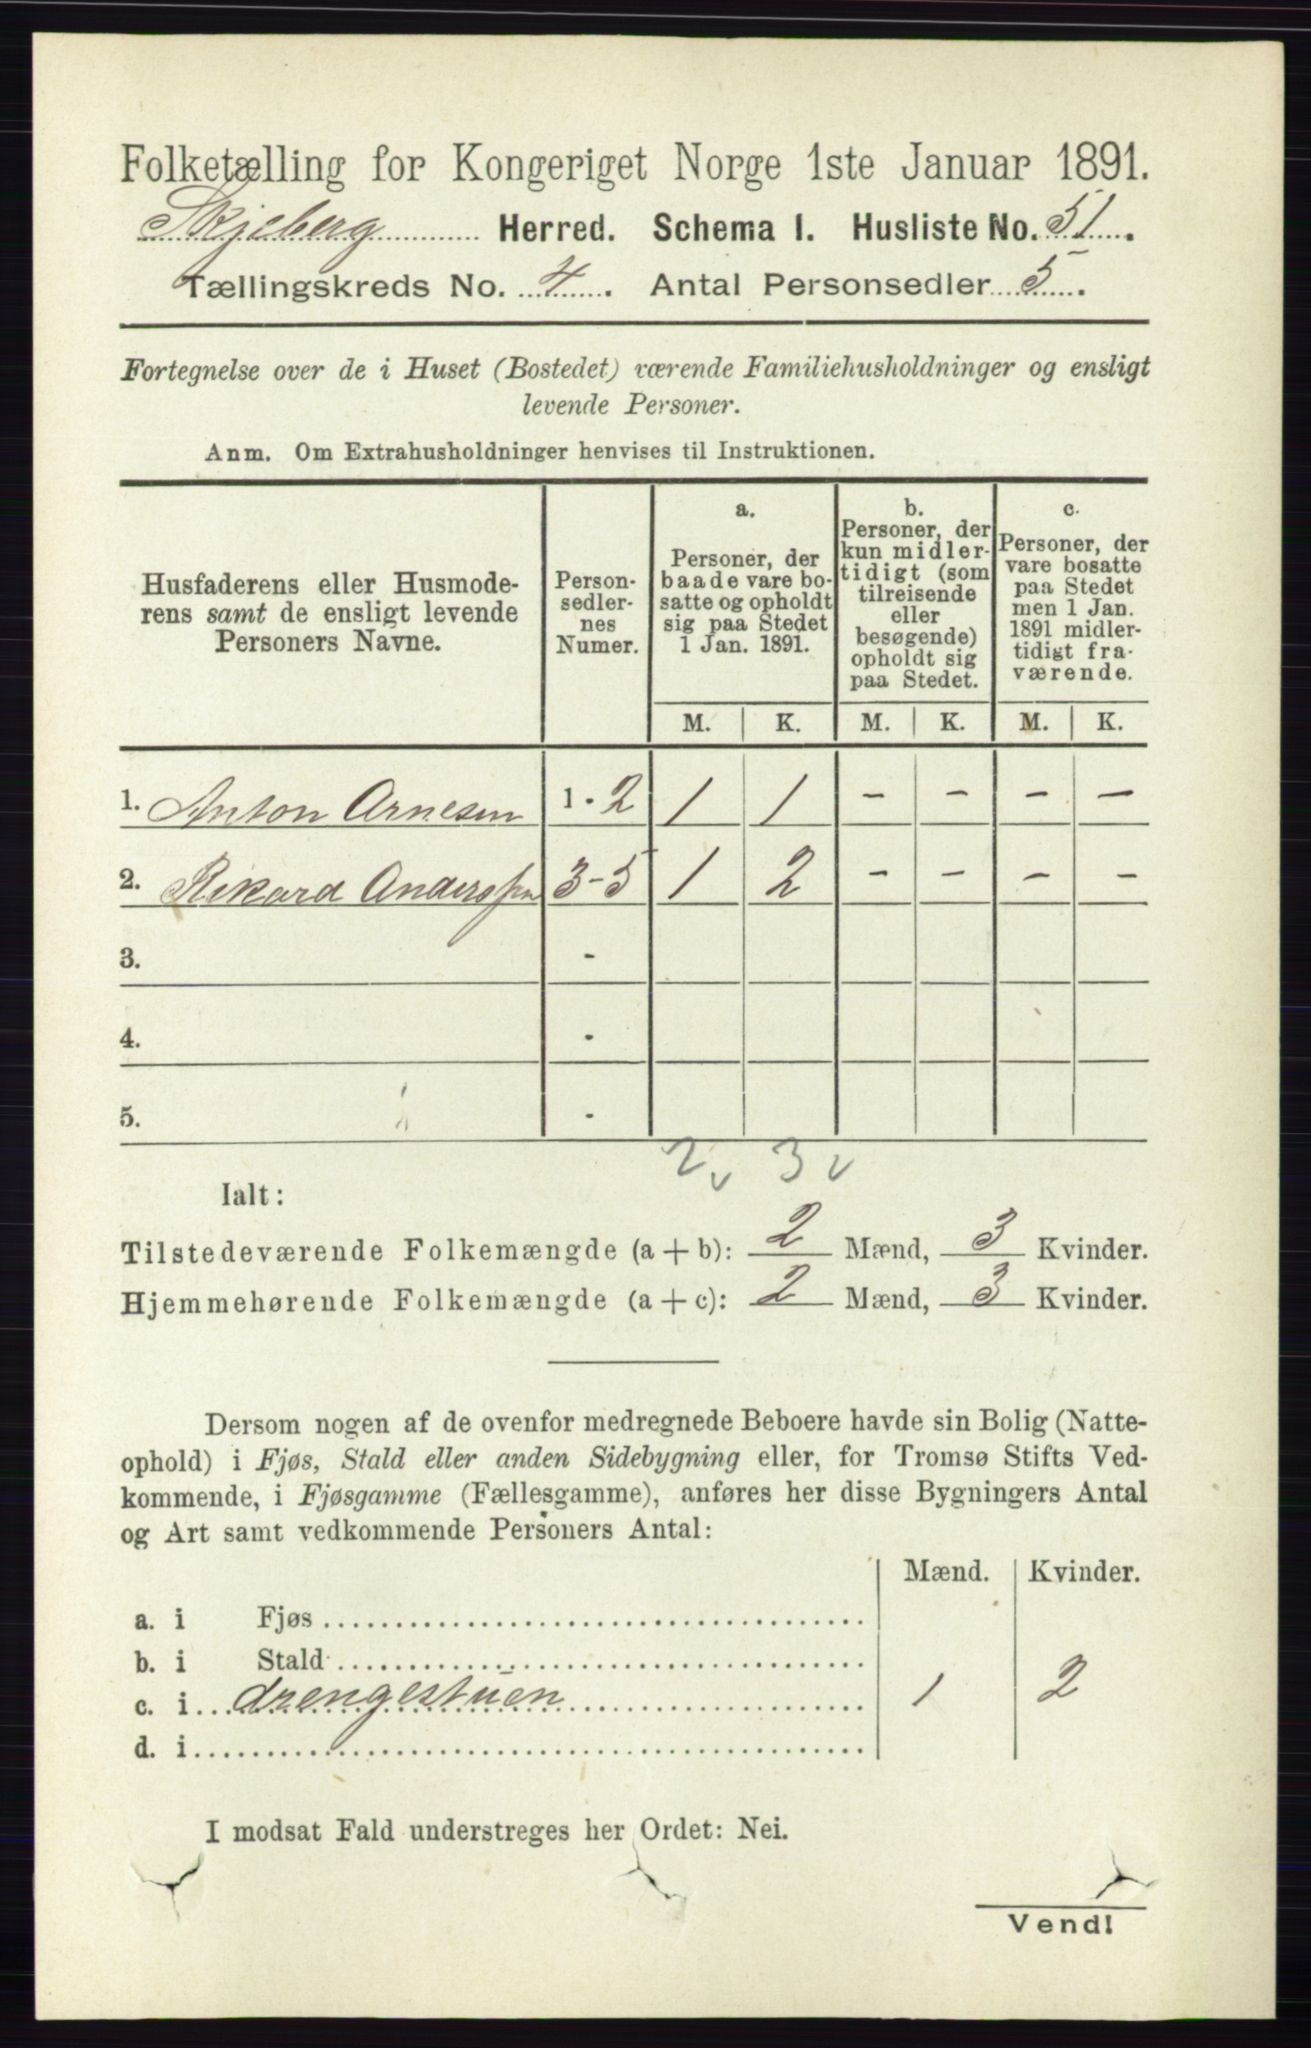 Folketælling for Kongeriget Norge 1ste Januar 1891.
Skjeberg Herred. Schema I. Husliste No. 51.
Tællingskreds No. 4. Antal Personsedler 5.
Fortegnelse over de i Huset (Bostedet) værende Familiehusholdninger og ensligt
levende Personer.
Anm. Om Extrahusholdninger henvises til Instruktionen.
Husfaderens eller Husmode-
rens samt de ensligt levende
Personers Navne.
Person-
sedler-
nes
Numer.
a.
Personer, der
baade vare bo-
satte og opholdt
sig paa Stedet
1 Jan. 1891.
b.
Personer, der
kun midler-
tidigt (som
tilreisende
eller
besøgende)
opholdt sig
paa Stedet.
c.
Personer, der
vare bosatte
paa Stedet
men 1 Jan.
1891 midler-
tidigt fra-
værende.
M. K. M. K. M. K.
1. Anton Arnesen 1 - 2 1 1 - - - -
2. Rikard Anderssen 3-5 1 2 - - - -
3. -
4. -
5. -
2 v 3 v
Ialt:
Tilstedeværende Folkemængde (a + b): 2 Mænd, 3 Kvinder.
Hjemmehørende Folkemængde (a + c): 2 Mænd, 3 Kvinder.
Dersom nogen af de ovenfor medregnede Beboere havde sin Bolig (Natte-
ophold) i Fjøs, Stald eller anden Sidebygning eller, for Tromsø Stifts Ved-
kommende, i Fjøsgamme (Fællesgamme), anføres her disse Bygningers Antal
og Art samt vedkommende Personers Antal:
Mænd. Kvinder.
a. i Fjøs
b. i Stald
c. i drengestuen 1 2
d. i
I modsat Fald understreges her Ordet: Nei.
Vend!